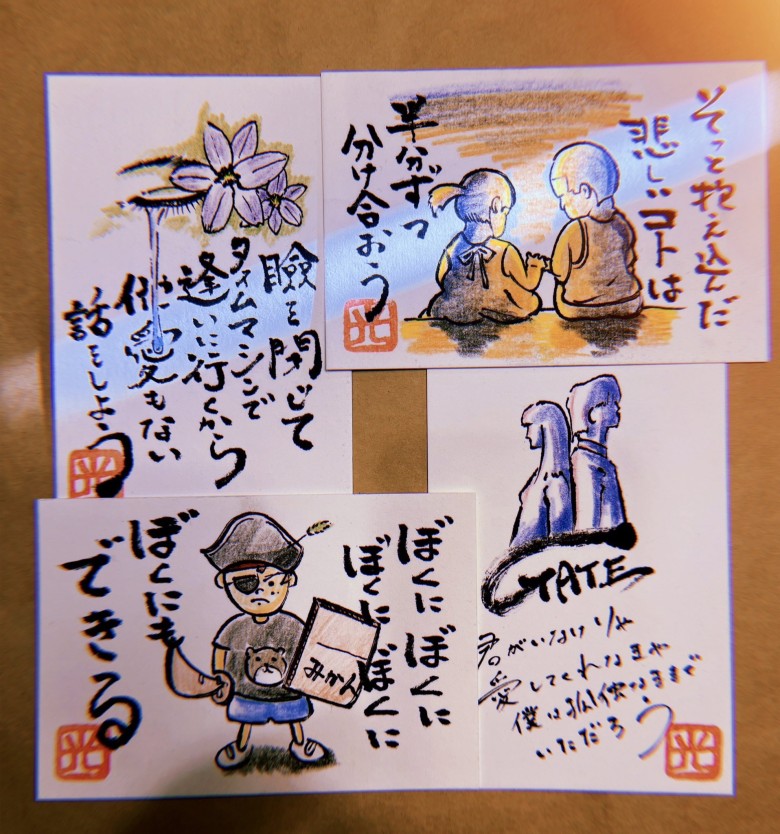 瞼を閉じて
タイムマシンで
逢いに行くから
他愛もない
話をしよう
光
そっと抱え込んだ
悲しいコトは
半分ずつ
分け合おう
光
ぼくに ぼくに
ぼくに ぼくに
ぼくにも
できる
みかん
光
TATE
君がいなけりゃ
愛してくれなきゃ
僕は孤独なままで
いただろう
光